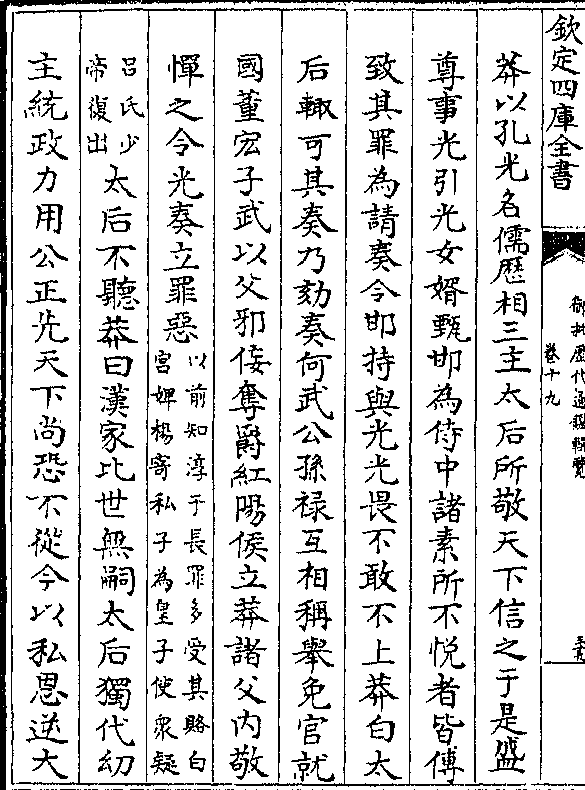 欽定四庫全書
御批歷代通鑑輯覽
卷十九
莽以孔光名儒歷相三主太后所敬天下信之于是盛
尊事光引光女婿甄邯為侍中諸素所不悅者皆傅
致其罪為請奏令邯持與光光畏不敢不上莽白太
后輙可其奏乃劾奏何武公孫禄互相稱舉免官就
國董宏子武以父邪佞奪爵紅陽侯立莽諸父内敬
憚之令光奏立罪惡以前知淳于長罪多受其賂白
宮婢楊寄私子為皇子使衆疑
吕氏少
帝復出太后不聽莽曰漢家比世無嗣太后獨代幼
主統政力用公正先天下尚恐不從今以私恩逆大